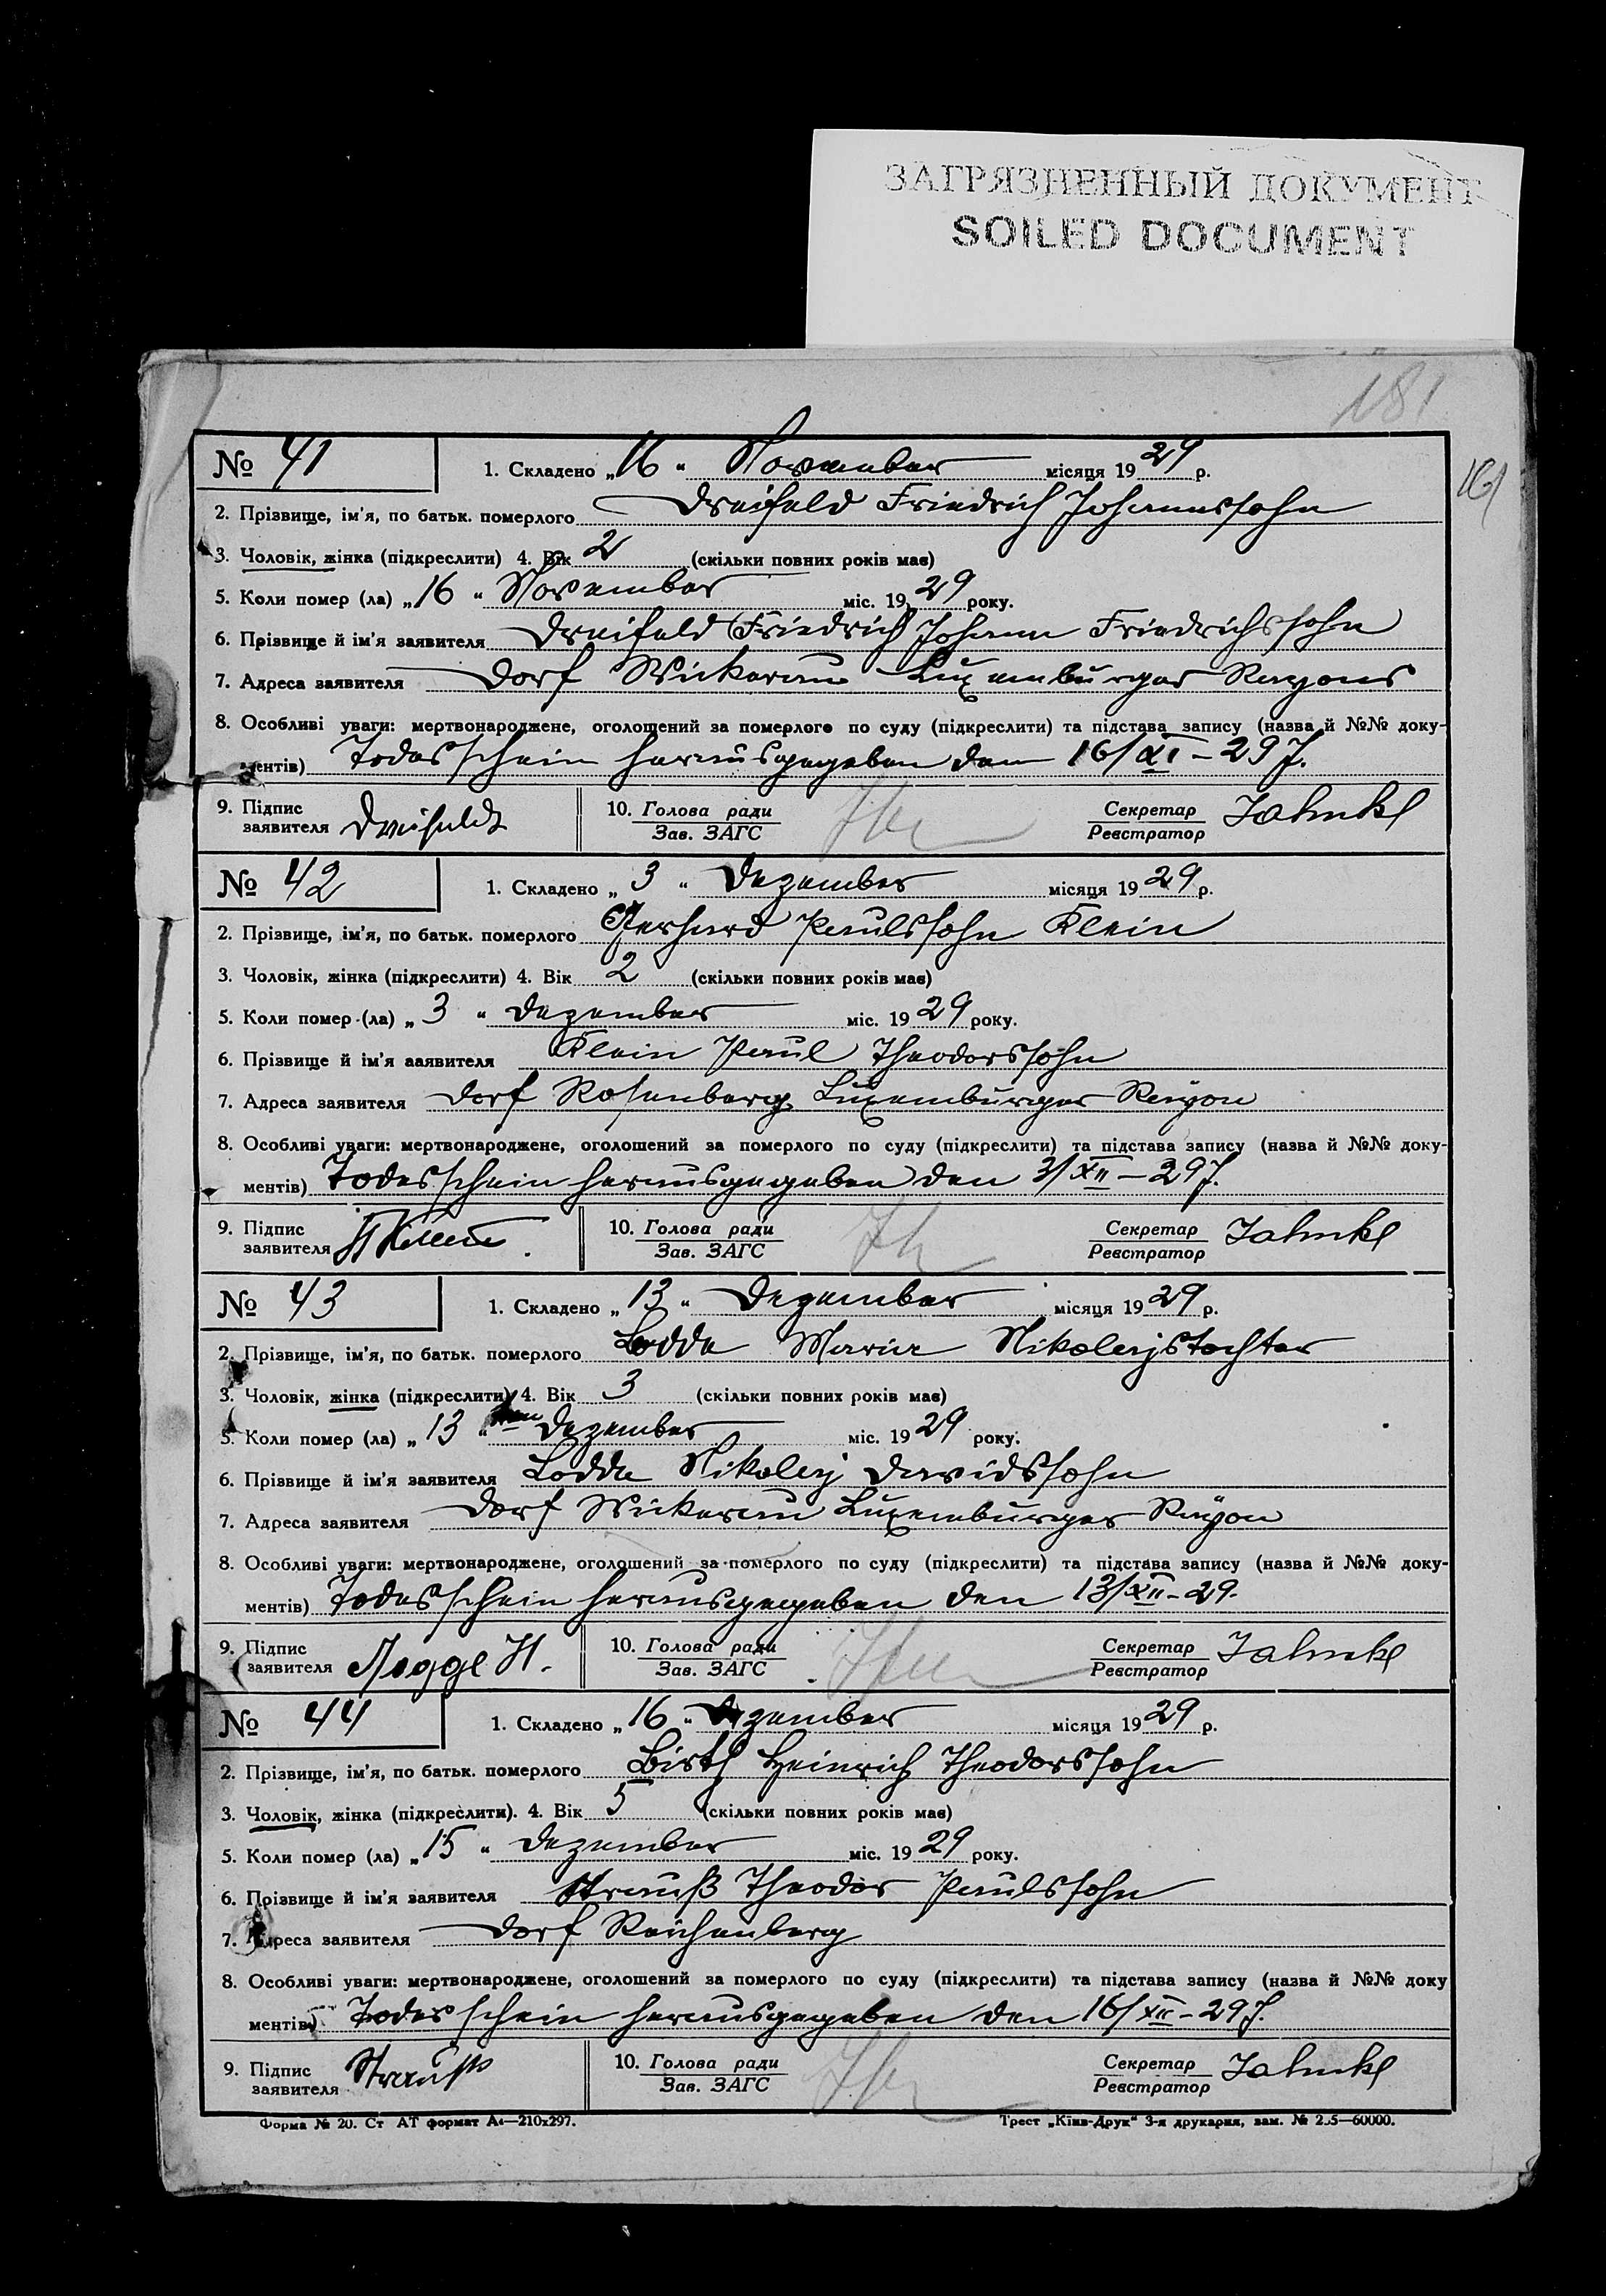 ЗАГРЯЗНЕННЫЙ ДОКУМЕНТ
SOILED DOCUMENT
181
№ 41 1. Складено „16“ November місяця 1929 р.
2. Прізвище, ім'я, по батьк. померлого Dreifeld Friedrich Johannssohn
3. Чоловік, жінка (підкреслити) 4. Вік 2 (скільки повних років має)
5. Коли помер (ла) „16“ November міс. 1929 року.
6. Прізвище й ім'я заявителя Dreifeld (Friedrich) Johann Friedrichssohn
7. Адреса заявителя Dorf Wickerau Luxemburger Rayons
8. Особливі уваги: мертвонароджене, оголошений за померлого по суду (підкреслити) та підстава запису (назва й №№ доку-
ментів) Todesschein herausgegeben dem 16/XI-29 J.
9. Підпис заявителя Dreifeldt 10. Голова ради Зав. ЗАГС Секретар Реєстратор Jahnke
№ 42 1. Складено „3“ Dezember місяця 1929 р.
2. Прізвище, ім'я, по батьк. померлого Gerhard Paulssohn Klein
3. Чоловік, жінка (підкреслити) 4. Вік 2 (скільки повних років має)
5. Коли помер (ла) „3“ Dezember міс. 1929 року.
6. Прізвище й ім'я заявителя Klein Paul Theodorssohn
7. Адреса заявителя Dorf Rosenberg Luxemburger Rayon
8. Особливі уваги: мертвонароджене, оголошений за померлого по суду (підкреслити) та підстава запису (назва й №№ доку-
ментів) Todesschein herausgegeben den 3/XII-29 J.
9. Підпис заявителя 10. Голова ради Зав. ЗАГС Секретар Реєстратор Jahnke
№ 43 1. Складено „13“ Dezember місяця 1929 р.
2. Прізвище, ім'я, по батьк. померлого Lodde Maria Nikolajstochter
3. Чоловік, жінка (підкреслити) 4. Вік 3 (скільки повних років має)
5. Коли помер (ла) „13“ Dezember міс. 1929 року.
6. Прізвище й ім'я заявителя Lodde Nikolaj Davidssohn
7. Адреса заявителя Dorf Wickerau Luxemburger Rayon
8. Особливі уваги: мертвонароджене, оголошений за померлого по суду (підкреслити) та підстава запису (назва й №№ доку-
ментів) Todesschein herausgegeben den 13/XII-29.
9. Підпис заявителя Лодде Н. 10. Голова ради Зав. ЗАГС Секретар Реєстратор Jahnke
№ 44 1. Складено „16“ Dezember місяця 1929 р.
2. Прізвище, ім'я, по батьк. померлого Birth Heinrich Theodorssohn
3. Чоловік, жінка (підкреслити). 4. Вік 5 (скільки повних років має)
5. Коли помер (ла) „15“ Dezember міс. 1929 року.
6. Прізвище й ім'я заявителя Strauß Theodor Paulssohn
7. Адреса заявителя Dorf Reichenberg
8. Особливі уваги: мертвонароджене, оголошений за померлого по суду (підкреслити) та підстава запису (назва й №№ доку
ментів) Todesschein herausgegeben den 16/XII-29 J.
9. Підпис заявителя Strauß 10. Голова ради Зав. ЗАГС Секретар Реєстратор Jahnke
Форма № 20. Ст АТ формат А4—210х297. Трест „Київ-Друк“ 3-я друкарня, зам. №